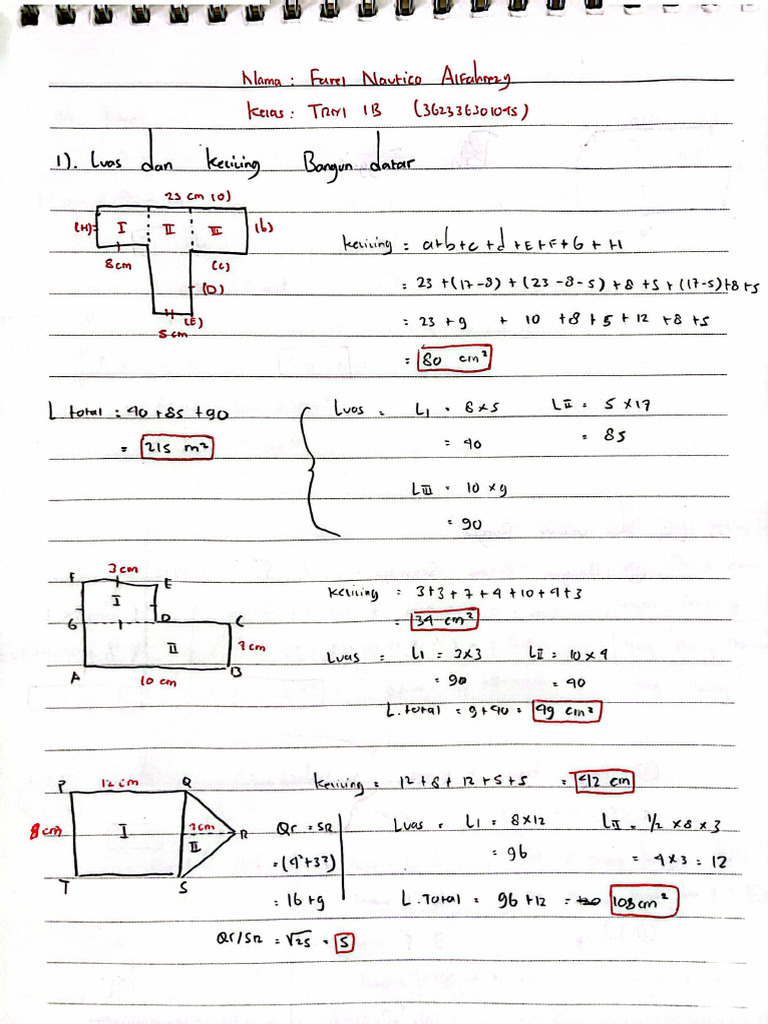 Nama : Farel Nautico Alfahrezy
Kelas : TRM 1B (362336301095)
1). Luas dan keliling Bangun datar
23 cm
(H)= I II III (b)
8cm (c)
(D)
(E)
5 cm
keliling = a+b+c+d+E+F+G+H
= 23 + (17-8) + (23-8-5) + 8 + 5 + (17-5)+8+5
= 23 + 9 + 10 + 8 + 5 + 12 + 8 + 5
= 80 cm²
L total : 40 + 85 + 90
= 215 m²
Luas = L1 = 8 x 5 LII = 5 x 17
= 40 = 85
LIII = 10 x 9
= 90
3cm
F E
I
G D C
II
A B
10 cm
keliling = 3+3+7+4+10+4+3
= 34 cm²
Luas = L1 = 3x3 LII = 10 x 4
= 90 = 40
L.total = 9+40 = 49 cm²
P 12 cm Q
8cm I 3cm R
II
T S
keliling = 12+8+12+5+5 = 42 cm
Qr = SR
= (4²+3²)
= 16+9
Qr/SR = √25 = 5
Luas = L1 = 8x12 LII = 1/2 x 8 x 3
= 96 = 4 x 3 = 12
L. Total = 96 + 12 = 108cm²